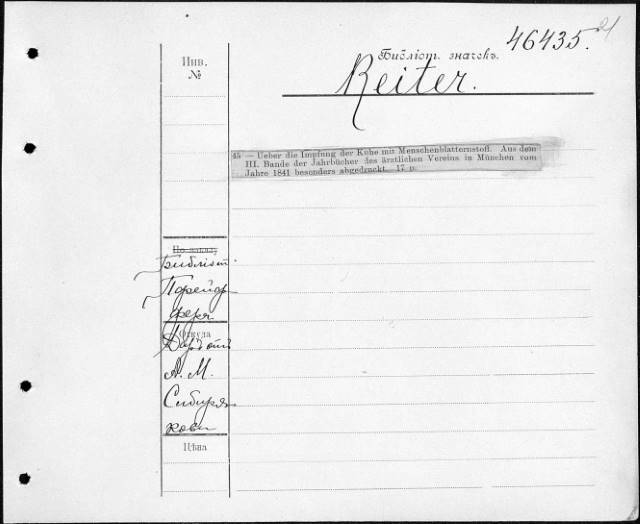 46435.
Библіот. значекъ.
Reiter.
Инв.
№
45 — Ueber die Impfung der Kühe mit Menschenblatternstoff. Aus dem
III. Bande der Jahrbücher des ärztlichen Vereins in München vom
Jahre 1841 besonders abgedruckt. 17 p.
Библіот.
Пфейф
фера
Откуда
Даръ отъ
А. М.
Сибиря-
кова
Цѣна